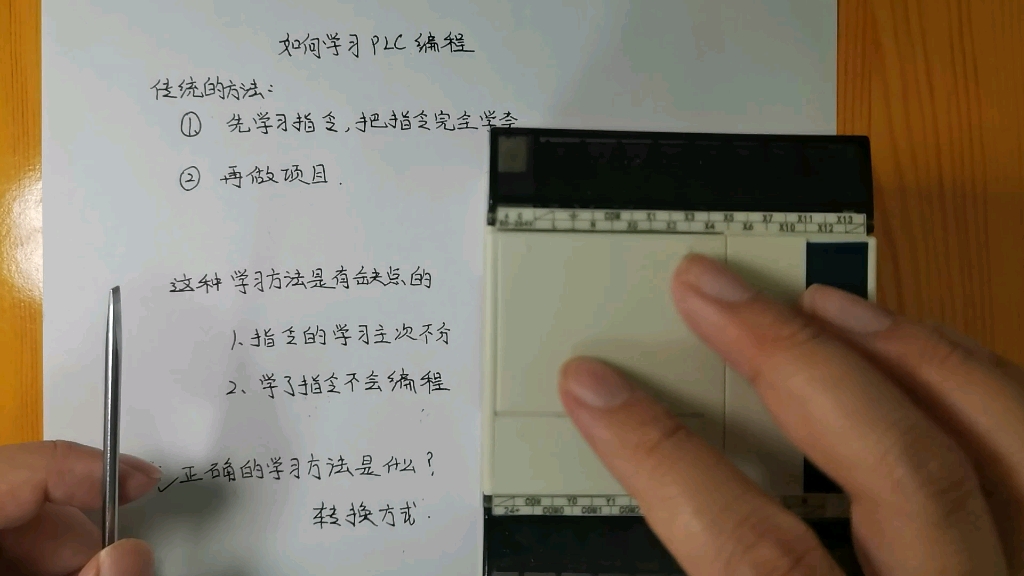 如何学习PLC编程
传统的方法:
① 先学习指令,把指令完全学会
② 再做项目.
这种学习方法是有缺点的
1、指令的学习主次不分
2、学了指令不会编程
✓正确的学习方法是什么?
转换方式.
COM X1 X3 X5 X7 X11 X13
X0 X4 X6 X10 X12
COM Y0 Y1
24+ COM0 COM1 COM2